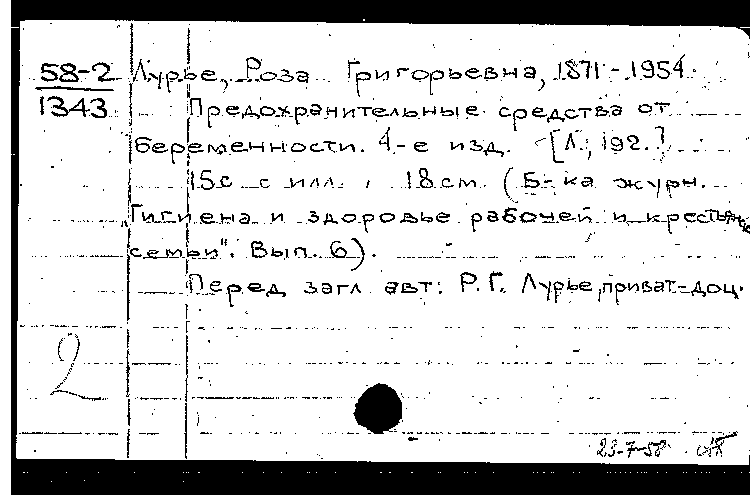 58-2 Лурье, Роза Григорьевна, 1871-1954.
1343 Предохранительные средства от
беременности. 4-е изд. [Л., 192.]
15с. с илл., 18см. (Б-ка журн.
"Гигиена и здоровье рабочей и крестьянск
семьи". Вып. 6).
Перед загл. авт: Р.Г. Лурье, приват-доц.
2
23-7-58